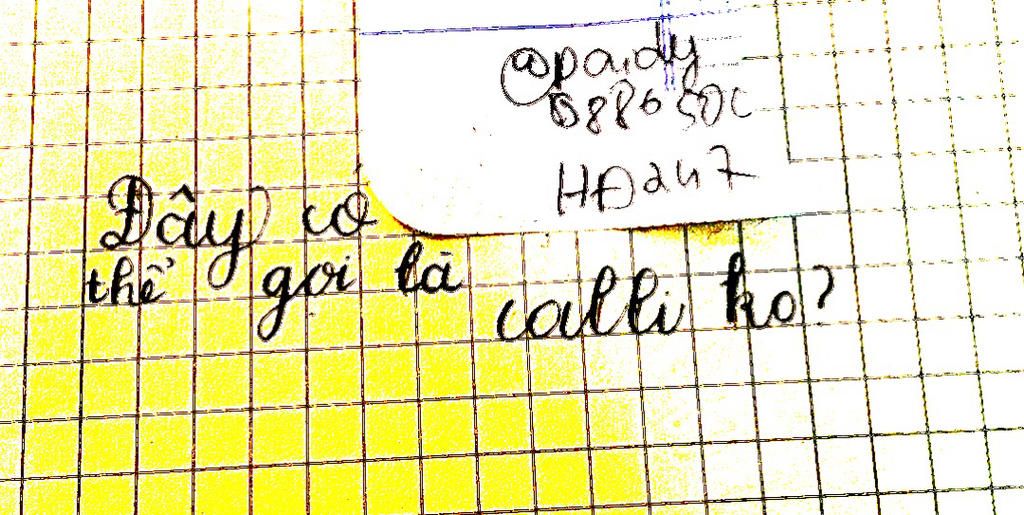 @paidy
0886500
HĐ247
Đây có
thể gọi là calli ko?